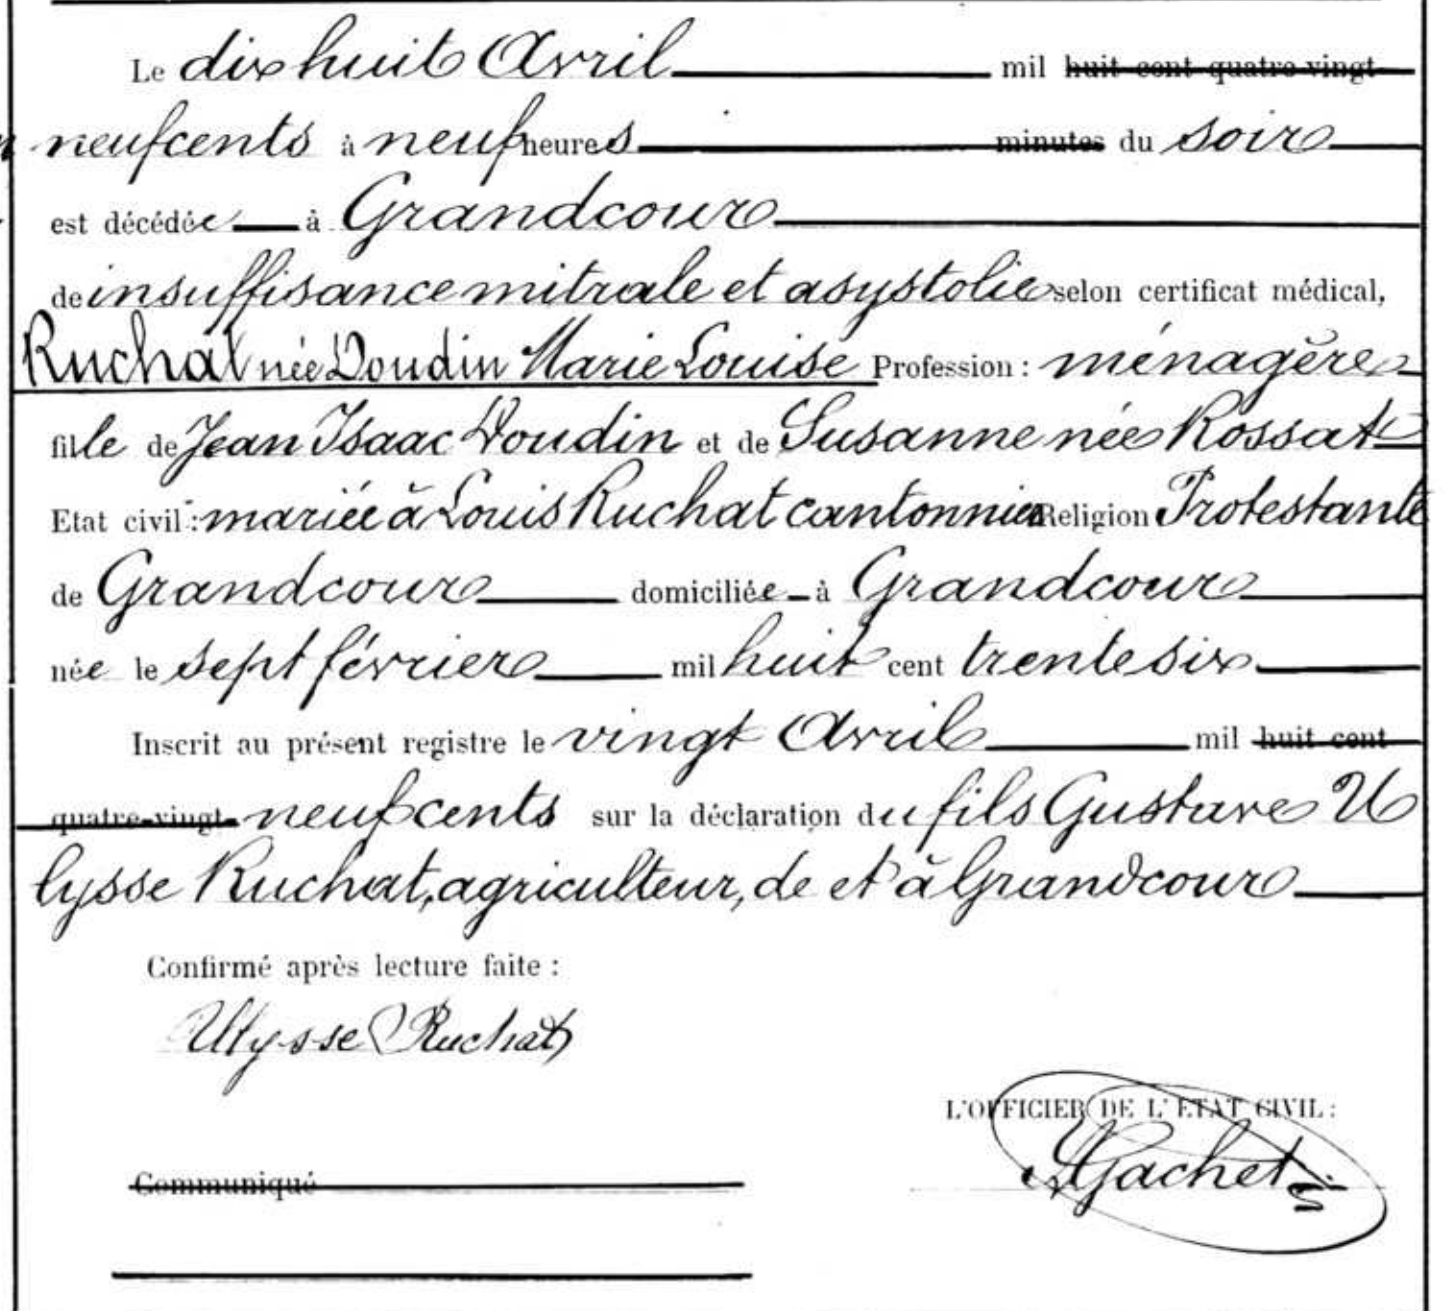 Le dix huit Avril mil huit cent quatre-vingt
neufcents à neuf heures minutes du soir
est décédée à Grandcour
de insuffisance mitrale et asystolie selon certificat médical,
Ruchat née Doudin Marie Louise Profession : ménagère
fille de Jean Isaac Doudin et de Susanne née Rossat
Etat civil : mariée à Louis Ruchat cantonnier Religion Protestante
de Grandcour domiciliée à Grandcour
née le sept février mil huit cent trente six
Inscrit au présent registre le vingt Avril mil huit cent
quatre-vingt neufcents sur la déclaration du fils Gustave U
lysse Ruchat, agriculteur, de et à Grandcour
Confirmé après lecture faite :
Ulysse Ruchat
L'OFFICIER DE L'ETAT CIVIL :
Gachet
Communiqué